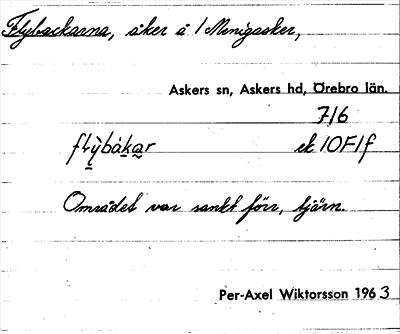 Flybackarna, åker å 1 Menigasker,
Askers sn, Askers hd, Örebro län.
7/6
flỳ̱båka̰r ek 10F1f
Området var sankt förr, tjärn.
Per-Axel Wiktorsson 1963